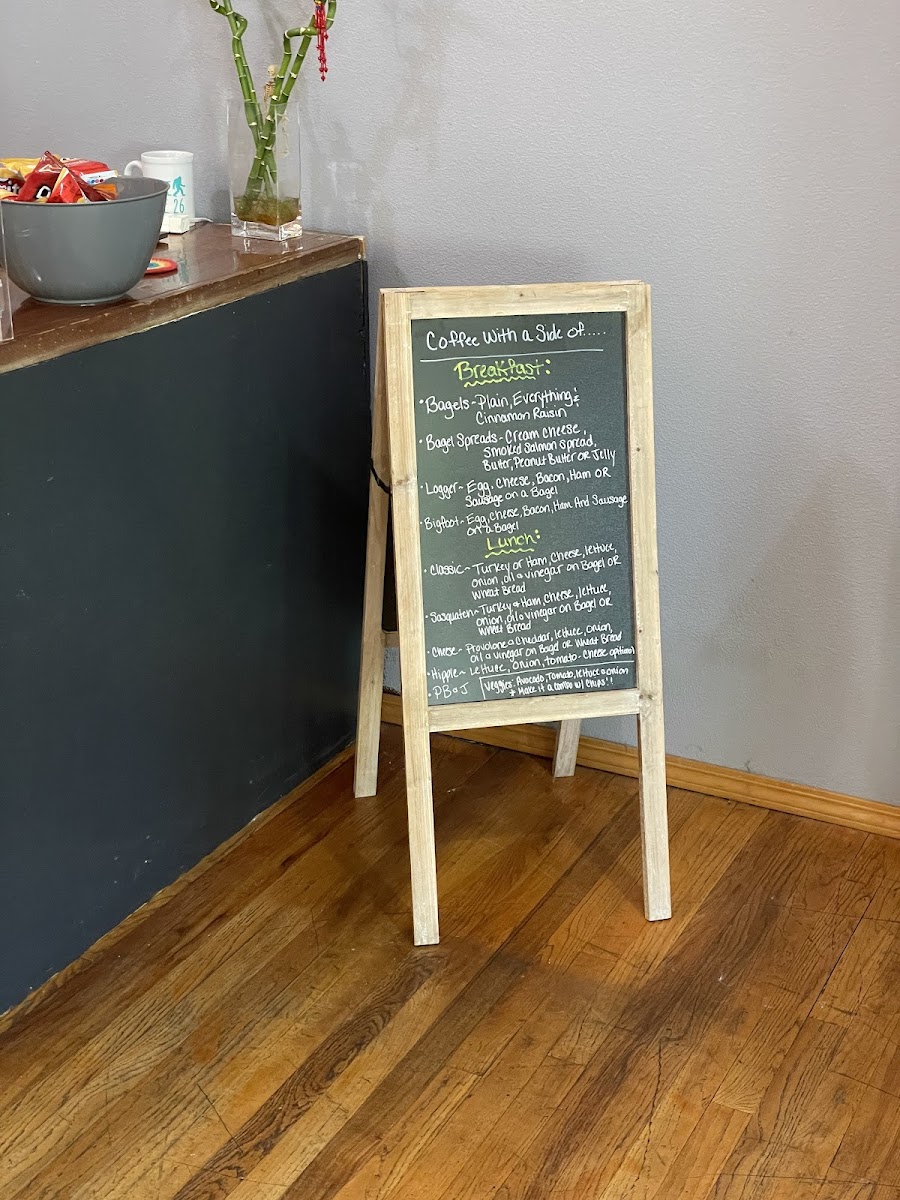 26
Coffee With a Side of.....
Breakfast:
• Bagels - Plain, Everything &
Cinnamon Raisin
• Bagel Spreads - Cream Cheese,
Smoked Salmon Spread,
Butter, Peanut Butter OR Jelly
• Logger - Egg, Cheese, Bacon, Ham OR
Sausage on a Bagel
• Bigfoot - Egg, Cheese, Bacon, Ham And Sausage
on a Bagel
Lunch:
• Classic - Turkey or Ham, Cheese, lettuce,
onion, oil & vinegar on Bagel OR
Wheat Bread
• Sasquatch - Turkey & Ham, Cheese, lettuce,
onion, oil & vinegar on Bagel OR
Wheat Bread
• Cheese - Provolone & Cheddar, lettuce, onion,
oil & vinegar on Bagel or Wheat Bread
• Hippie - Lettuce, onion, tomato - Cheese optional
• PB & J
Veggies: Avocado, Tomato, lettuce & onion
* Make it a combo w/ Chips!!